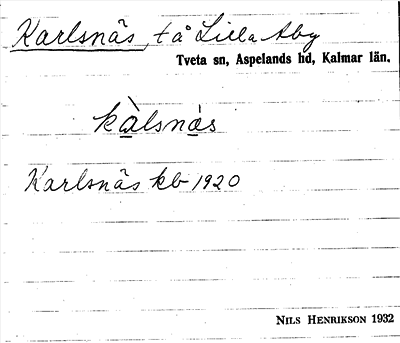 Karlsnäs, t å Lilla Aby
Tveta sn, Aspelands hd, Kalmar län.
kàlsnä̀s
Karlsnäs kb 1920
NILS HENRIKSON 1932